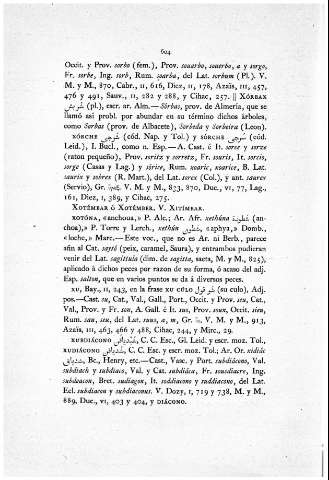 604
Occit. y Prov. sorbo (fem.), Prov. souarbo, souerbo, a y sorgo,
Fr. sorbe, Ing. sorb, Rum. soarba, del Lat. sorbum (Pl.). V.
M. y M., 870, Cabr., II, 616, Diez, II, 178, Azaïs, III, 457,
476 y 491, Sauv., II, 282 y 288, y Cihac, 257. || XÓRBAX
شربش (pl.), escr. ar. Alm.—Sorbas, prov. de Almería, que se
llamó así probl. por abundar en su término dichos árboles,
como Sorbas (prov. de Albacete), Sorbeda y Sorbeira (Leon).
XÓRCHE شرجى (cód. Nap. y Tol.) y SÓRCHE سرجى (cód.
Leid.), I. Bucl., como n. Esp.—A. Cast. é It. sorce y sorze
(raton pequeño), Prov. soritz y sorretz, Fr. souris, It. sorcio, sorge
(Casas y Lag.) y sórice, Rum. xoaric, xoarice, B. Lat.
saurix y sobrex (R. Mart.), del Lat. sorex (Col.), y ant. saurex
(Servio), Gr. V. M. y M., 833, 870, Duc., VI, 77, Lag.,
161, Diez, I, 389, y Cihac, 275.
XOTÉMBAR Ó XOTÉMBER. V. XITÍMBAR.
XOTÓNA, «anchoua,» P. Alc.; Ar. Afr. xethúna شطونة (anchoa,)»
P. Torre y Lerch., xethún شطون, «aphya,» Domb.,
«loche,» Marc.—Este voc., que no es Ar. ni Berb., parece
afin al Cat. saytó (peix, caramel, Saura), y entrambos pudieran
venir del Lat. sagittula (dim. de sagitta, saeta, M. y M., 825),
aplicado á dichos peces por razon de su forma, ó acaso del adj.
Esp. salton, que en varios puntos se da á diversos peces.
XU, Bay., II, 243, en la frase XU CÚLO شو قول (su culo), Adj.
pos.—Cast. su, Cat., Val., Gall., Port., Occit. y Prov. seu, Cat.,
Val., Prov. y Fr. son, A. Gall. é It. suo, Prov. soun, Occit. sieu,
Rum. sau, seu, del Lat. suus, a, m, Gr. V. M. y M., 913,
Azaïs, III, 463, 466 y 488, Cihac, 244, y Mirc., 29.
XUBDIÁCONO شبدياقن, C. C. Esc., Gl. Leid. y escr. moz. Tol.,
XUDIÁCONO شدياقن, C. C. Esc. y escr. moz. Tol.; Ar. Or. xidiác
شدياق, Bc., Henry, etc.—Cast., Vasc. y Port. subdiácono, Val.
subdiach y subdiaco, Val. y Cat. subdiáca, Fr. sousdiacre, Ing.
subdeacon, Bret. sudiagon, It. soddiacono y suddiacono, del Lat.
Ecl. subdiacon y subdiaconus. V. Dozy, I, 719 y 738, M. y M.,
889, Duc., VI, 403 y 404, y DIÁCONO.